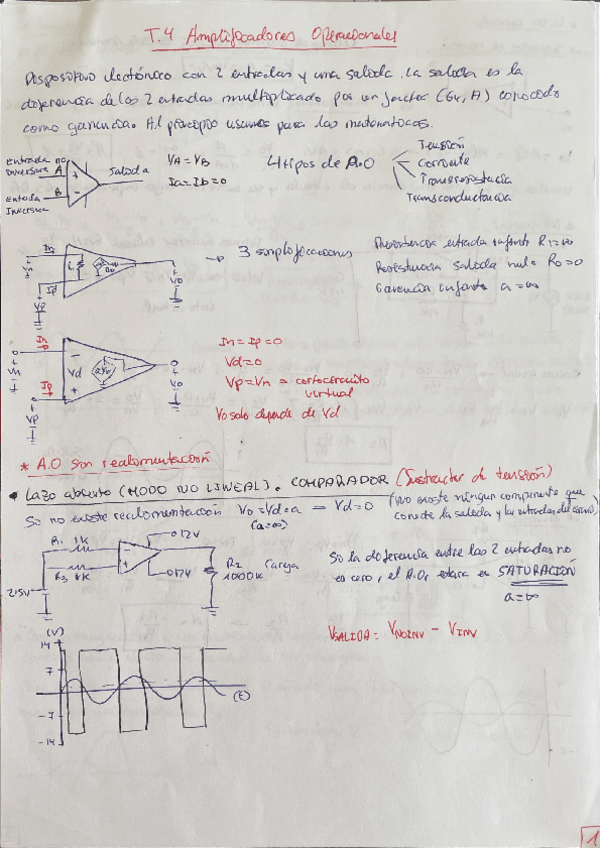 T.4 Amplificadores Operacionales
Dispositivo electrónico con 2 entradas y una salida. La salida es la
diferencia de las 2 entradas multiplicado por un factor (Gv, A) conocido
como ganancia. Al principio usamos para las matematicas.
Entrada no
inversora A
Salida
Entrada B
Inversora
VA = VB
Ia = Ib = 0
4 tipos de A.O
Tensión
Corriente
Transresistacia
Transconductacia
In
+ Vn -
Ri
Ro
Ip
+ Vp -
+ Vo -
→ 3 simplificaciones
Resistencia entrada infinita Ri = ∞
Resistencia salida nula Ro = 0
Ganancia infinita a = ∞
In
+ Vn -
Vd
aVd
Ip
+ Vp -
+ Vo -
In = Ip = 0
Vd = 0
Vp = Vn = cortocircuito
virtual
Vo solo depende de Vd
* A.O sin realimentación
• Lazo abierto (MODO NO LINEAL). COMPARADOR (Sustractor de tensión)
Si no existe realimentación Vo = Vd · a = Vd = 0 (No existe ningun componente que
(a = ∞) conecte la salida y las entradas del circuito)
R1 1K
R3 1K
12V
12V
R2 Carga
1000K
Si la diferencia entre las 2 entradas no
es cero, el A.O, estara en SATURACIÓN
a = ∞
VSALIDA = VNOINV - VINV
(V)
14
7
-7
-14
(t)
1